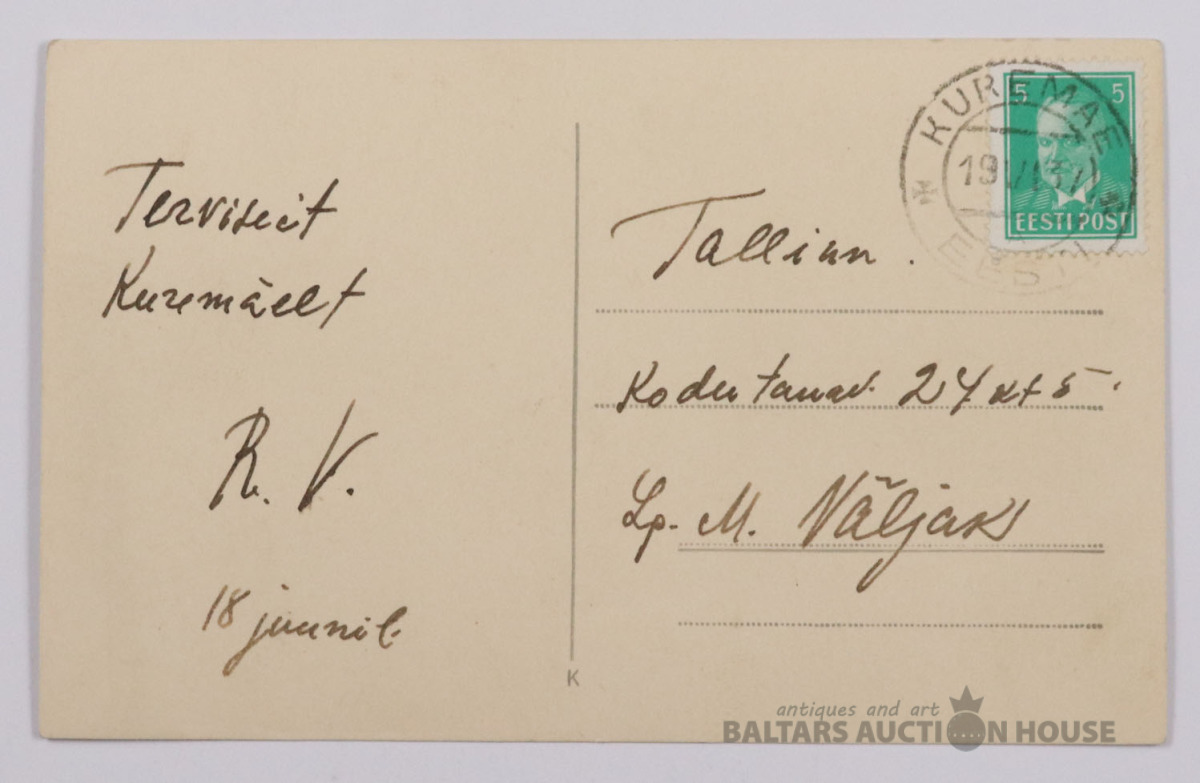 Terviseit
Kuremäelt
R. V.
18 juunil.
KUREMÄE
19 VI 37
EESTI
5 5
EESTI POST
Tallinn.
Kodu tänav. 24 kt 5.
Lp. M. Väljak
K
antiques and art
BALTARS AUCTION HOUSE